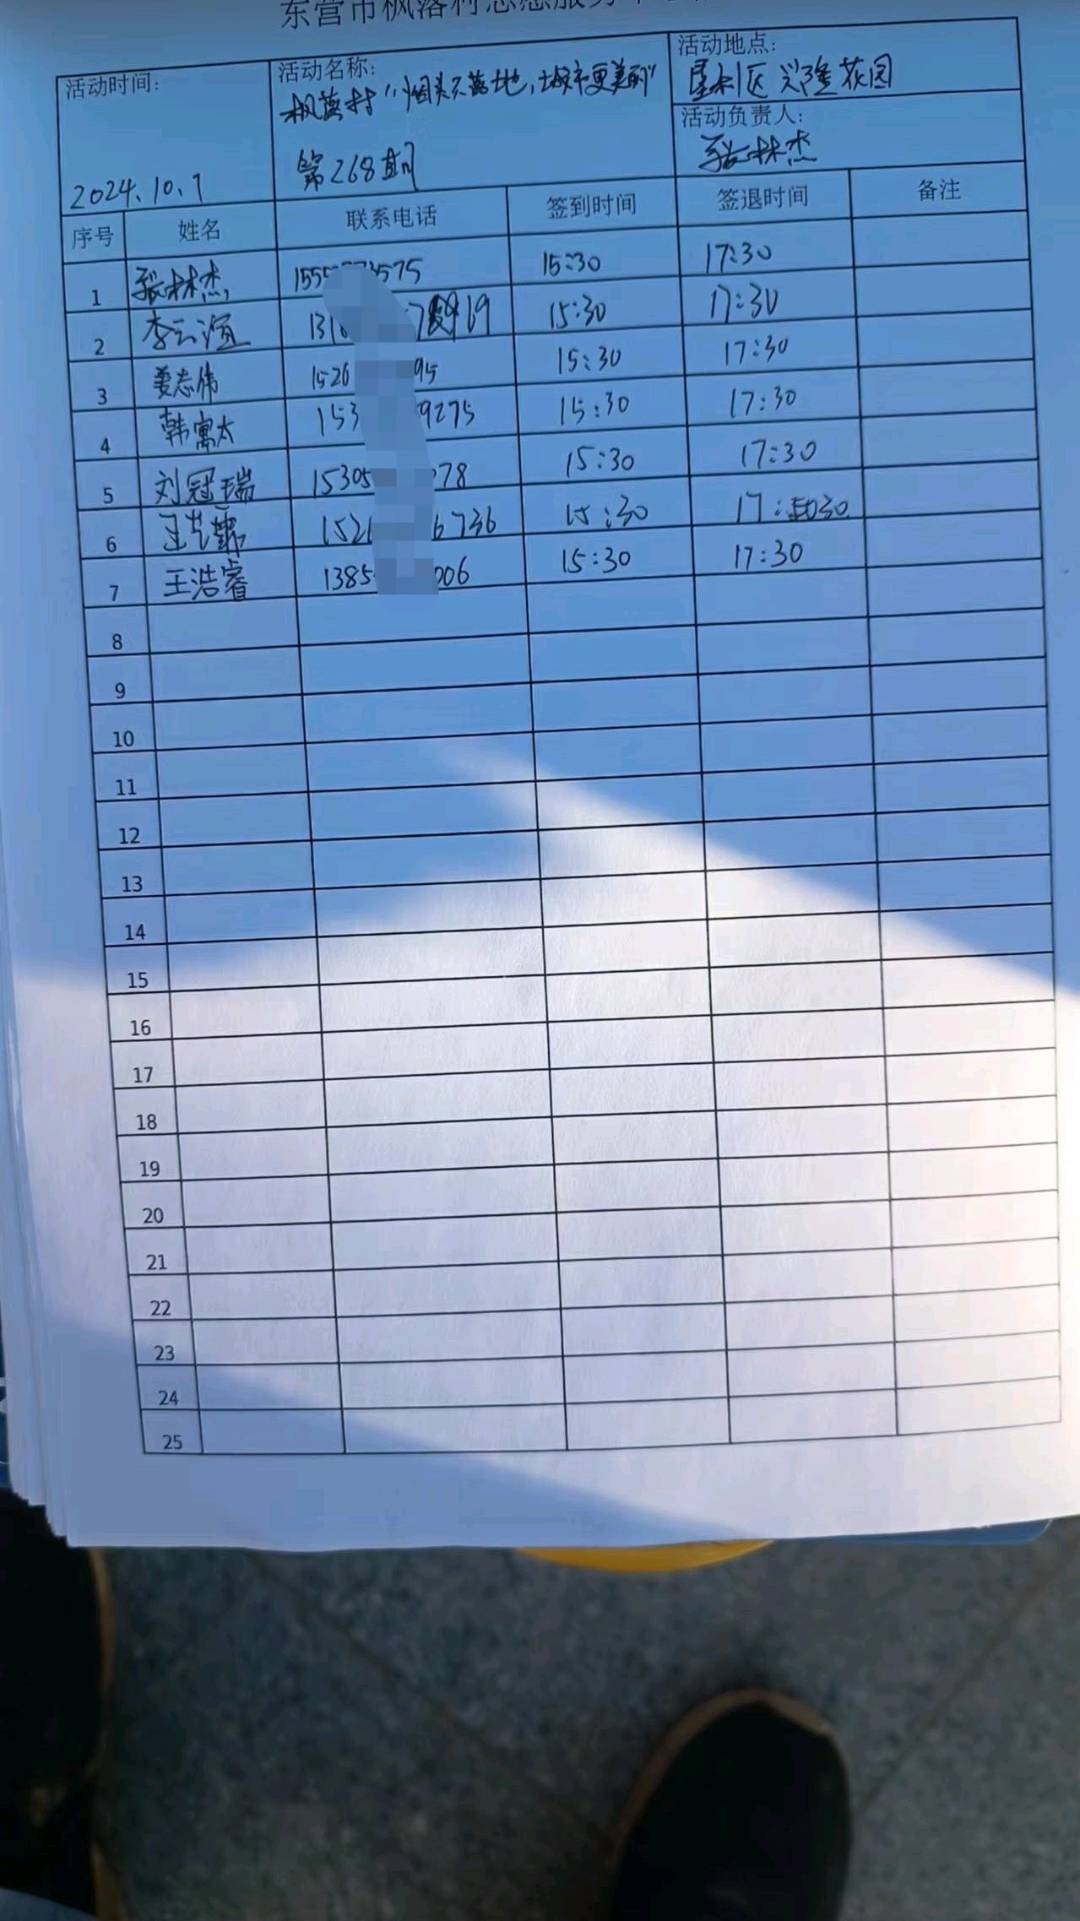 东营市枫落村志愿服务
活动时间: 2024.10.7
活动名称: 枫落村“烟头不落地,城市更美丽”
第268期
活动地点: 垦利区兴隆花园
活动负责人: 张林杰
序号 姓名 联系电话 签到时间 签退时间 备注
1 张林杰 155 3575 15:30 17:30
2 李云谊 131 69 15:30 17:30
3 姜志伟 1526 95 15:30 17:30
4 韩寓太 153 9275 15:30 17:30
5 刘冠瑞 15305 78 15:30 17:30
6 152 6736 15:30 17:30
7 王浩睿 1385 006 15:30 17:30
8
9
10
11
12
13
14
15
16
17
18
19
20
21
22
23
24
25